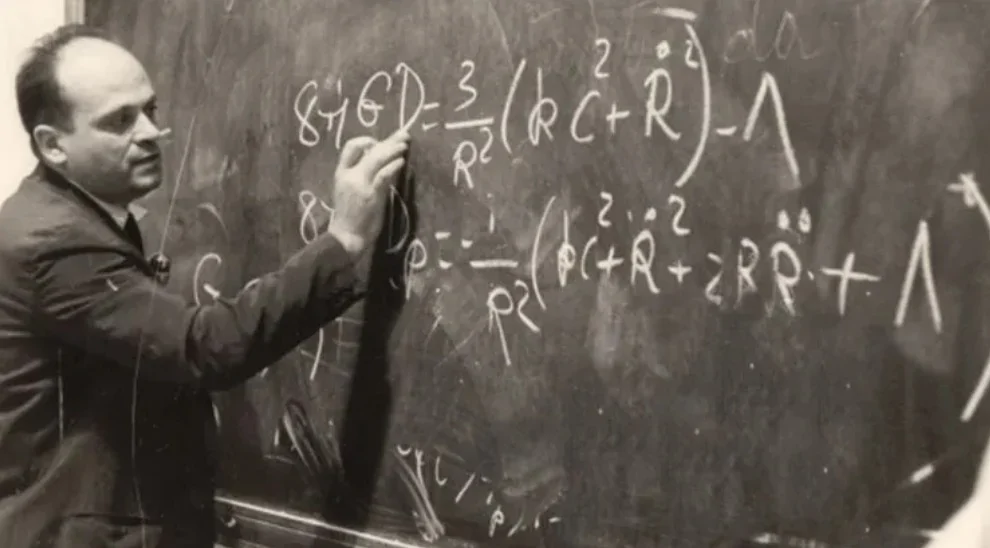 da
8πGD = 3/R² (kc² + Ṙ²) - Λ
8π p = - 1/R² (kc² + Ṙ² + 2RR̈ + Λ
G